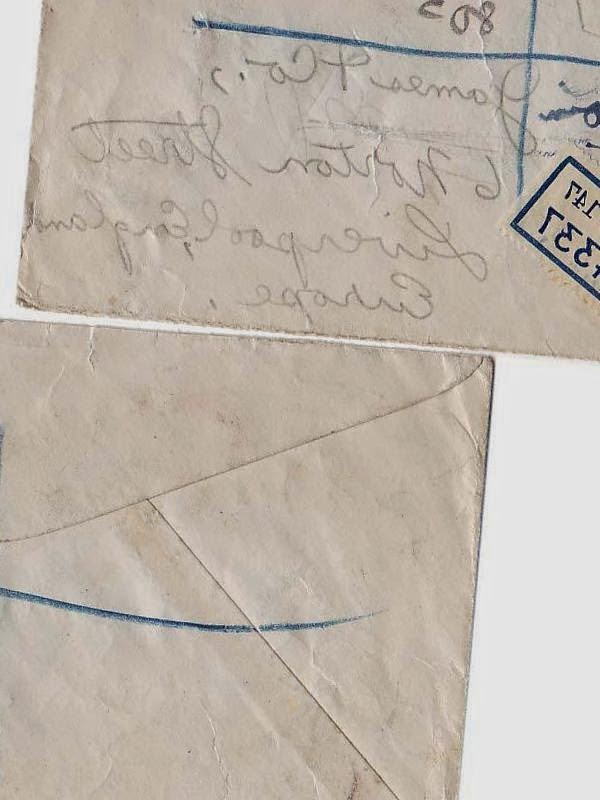 805
James & Co.,
6 Norton Street
Liverpool, England
Europe.
147
4337